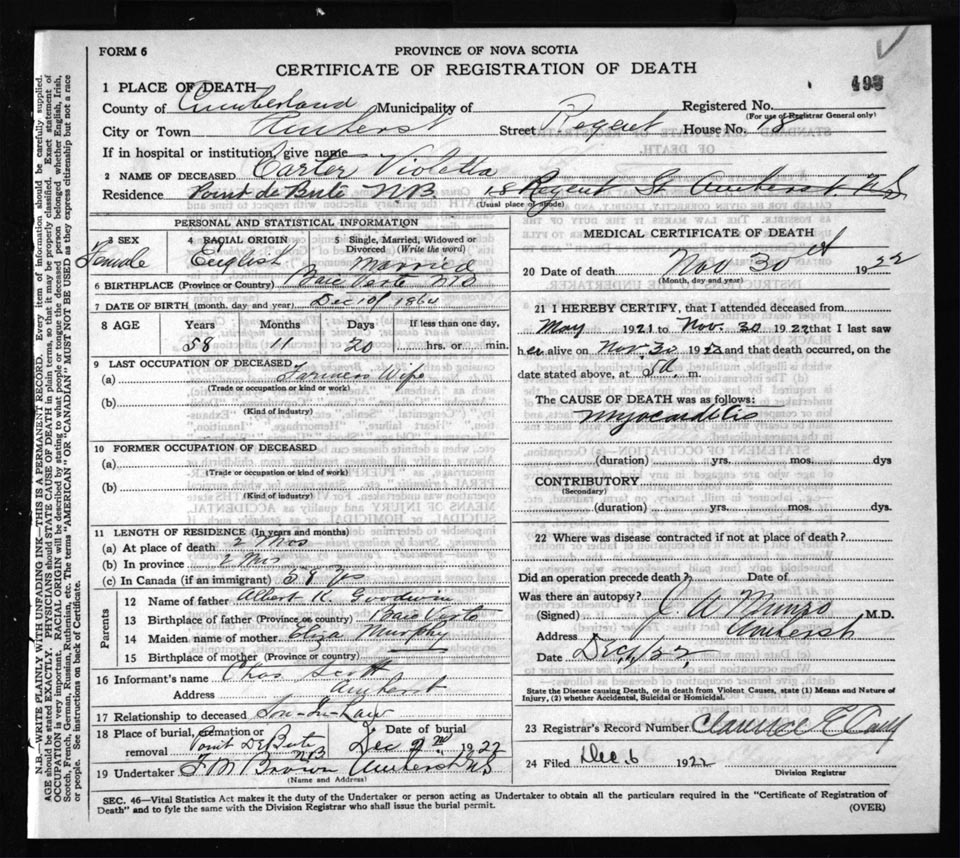 FORM 6
PROVINCE OF NOVA SCOTIA
CERTIFICATE OF REGISTRATION OF DEATH
498
1 PLACE OF DEATH
County of Cumberland Municipality of Registered No.
(For use of Registrar General only)
City or Town Amherst Street Regent House No.
If in hospital or institution, give name
2 NAME OF DECEASED Carter Violetta
Residence Point de Bute NB 18 Regent St Amherst N.S
(Usual place of abode)
PERSONAL AND STATISTICAL INFORMATION
3 SEX Female
4 RACIAL ORIGIN English
5 Single, Married, Widowed or Divorced (Write the word) Married
6 BIRTHPLACE (Province or Country) Baie Verte NB
7 DATE OF BIRTH (month, day and year) Dec 10
8 AGE Years Months Days If less than one day,
58 11 20 hrs. or min.
9 LAST OCCUPATION OF DECEASED
(a) Farmers Wife
(Trade or occupation or kind or work)
(b)
(Kind of industry)
10 FORMER OCCUPATION OF DECEASED
(a)
(Trade or occupation or kind of work)
(b)
(Kind of industry)
11 LENGTH OF RESIDENCE (In years and months)
(a) At place of death 2 Mos
(b) In province 2 Mos
(c) In Canada (if an immigrant) 58 Yrs
Parents
12 Name of father Albert K. Goodwin
13 Birthplace of father (Province or country) Baie Verte
14 Maiden name of mother Eliza Murphy
15 Birthplace of mother (Province or country)
16 Informant's name Chas Scott
Address Amherst
17 Relationship to deceased Son-In-Law
18 Place of burial, cremation or removal Point DeBute NB Date of burial Dec 2nd 1922
19 Undertaker F M Brown Amherst NS
(Name and Address)
MEDICAL CERTIFICATE OF DEATH
20 Date of death Nov 30th 1922
(Month, day and year)
21 I HEREBY CERTIFY, that I attended deceased from
May 1921 to Nov. 30 1922 that I last saw
her alive on Nov. 30 1922 and that death occurred, on the
date stated above, at m.
The CAUSE OF DEATH was as follows:
Myocarditis
(duration) yrs. mos. dys
CONTRIBUTORY
(Secondary)
(duration) yrs. mos. dys
22 Where was disease contracted if not at place of death?
Did an operation precede death? Date of
Was there an autopsy?
(Signed) J A Munro M.D.
Address Amherst
Date Dec 1/22
State the Disease causing Death, or in death from Violent Causes, state (1) Means and Nature of Injury, (2) whether Accidental, Suicidal or Homicidal.
23 Registrar's Record Number Clarence E
24 Filed Dec 6 1922
Division Registrar
SEC. 46—Vital Statistics Act makes it the duty of the Undertaker or person acting as Undertaker to obtain all the particulars required in the "Certificate of Registration of
Death" and to fyle the same with the Division Registrar who shall issue the burial permit.
(OVER)
N.B.—WRITE PLAINLY WITH UNFADING INK—THIS IS A PERMANENT RECORD. Every item of information should be carefully supplied.
AGE should be stated EXACTLY. PHYSICIANS should STATE CAUSE OF DEATH in plain terms, so that it may be properly classified. Exact statement of
OCCUPATION is very important. RACIAL ORIGIN will be described by stating to what people or tongue the deceased person belonged whether English, Irish,
Scotch, French, German, Russian, Ruthenian, etc. The terms "AMERICAN" OR "CANADIAN" MUST NOT BE USED as they express citizenship but not a race
or people. See instructions on back of Certificate.